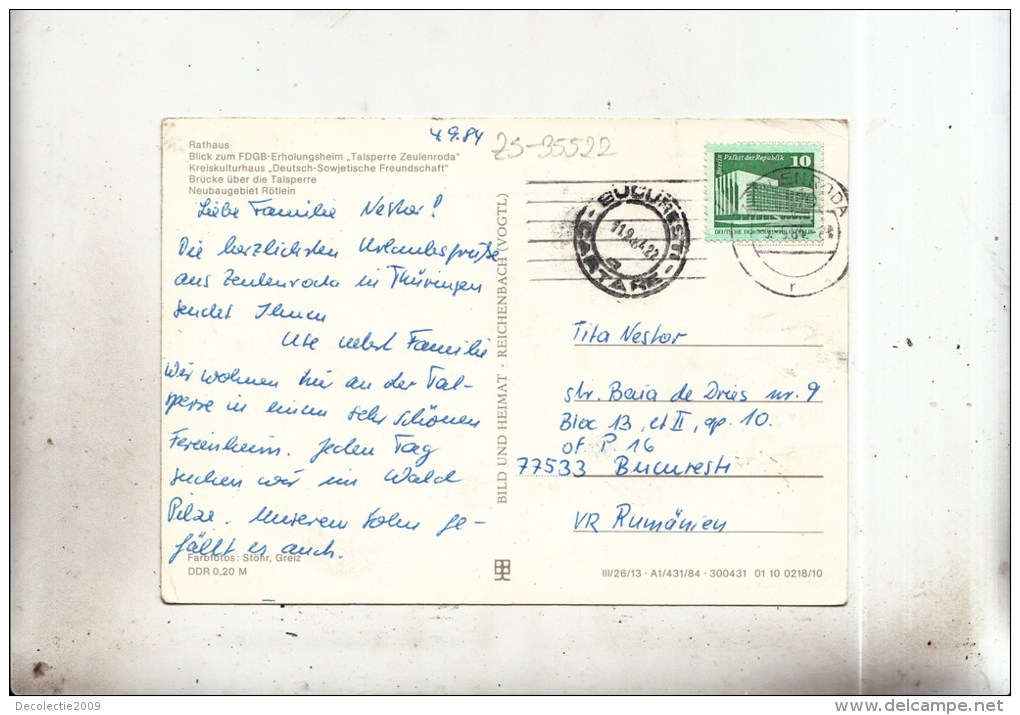 4.9.84
25-35522
Rathaus
Blick zum FDGB-Erholungsheim „Talsperre Zeulenroda"
Kreiskulturhaus „Deutsch-Sowjetische Freundschaft"
Brücke über die Talsperre
Neubaugebiet Rötlein
Liebe Familie Nestor!
Die herzlichsten Urlaubsgrüße
aus Zeulenroda in Thüringen
sendet Ihnen
Ute nebst Familie
Wir wohnen hier an der Tal-
sperre in einem sehr schönen
Ferienheim. Jeden Tag
suchen wir im Wald
Pilze. Unserem Sohn ge-
fällt es auch.
Farbfotos: Stöhr, Greiz
DDR 0,20 M
BILD UND HEIMAT · REICHENBACH (VOGTL)
BUCURESTI
11.9.84.22
CARTARE
Berlin Palast der Republik 10
DEUTSCHE DEMOKRATISCHE REPUBLIK
ENRODA
r
Tita Nestor
str. Baia de Dries nr. 9
Bloc 13, et II, ap. 10.
of. P. 16
77533 Bucuresti
VR Rumänien
III/26/13 · A1/431/84 · 300431 01 10 0218/10
Decolectie2009
delcampe.net